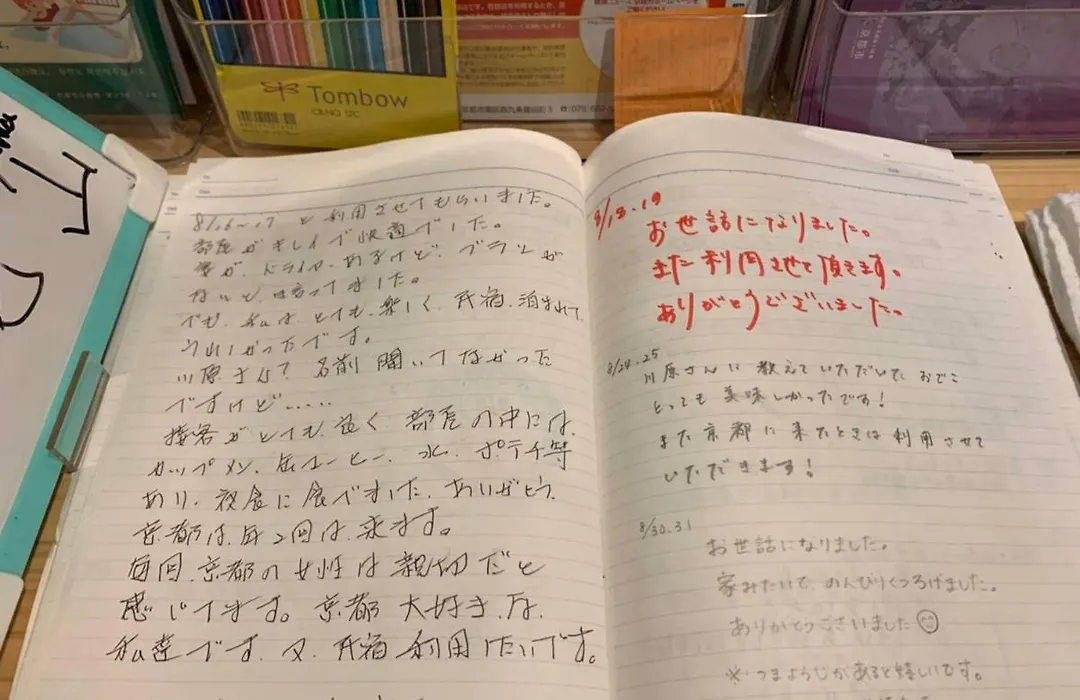 Tombow
8/16〜17 と利用させてもらいました。
部屋がキレイで快適でした。
ドライヤーあるけど、ブラシが
ないと、思ってました。
でも、私は、とても、楽しく、民宿、泊まれて、
うれしかったです。
川原さん? 名前聞いてなかった
ですけど.....
接客がとても、良く、部屋の中には、
カップメン、缶コーヒー、水、ポテチ等
あり、夜食に食べました、ありがとう、
京都は、年2回は、来ます。
毎回、京都の女性は親切だと
感じてます。京都大好き、な、
私達です、又、民宿利用したいです。
8/18.19
お世話になりました。
また利用させて頂きます。
ありがとうございました。
8/24.25
川原さんに教えていただいたおでこ
とっても美味しかったです!
また京都に来たときは利用させて
いただきます!
8/30.31
お世話になりました。
家みたいで、のんびりくつろげました。
ありがとうございました
※つまようじがあると嬉しいです。